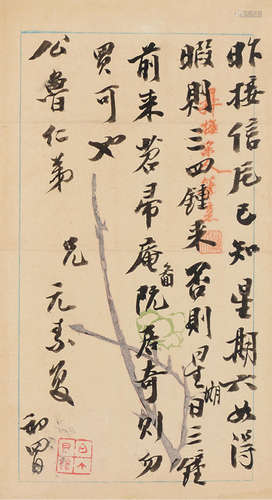 昨接信已知星期六如得
暇則三四鐘来否則星期日三鐘
前来苕帚庵畫既居奇則勿
買可也
公魯仁弟 兄元素复
初四日